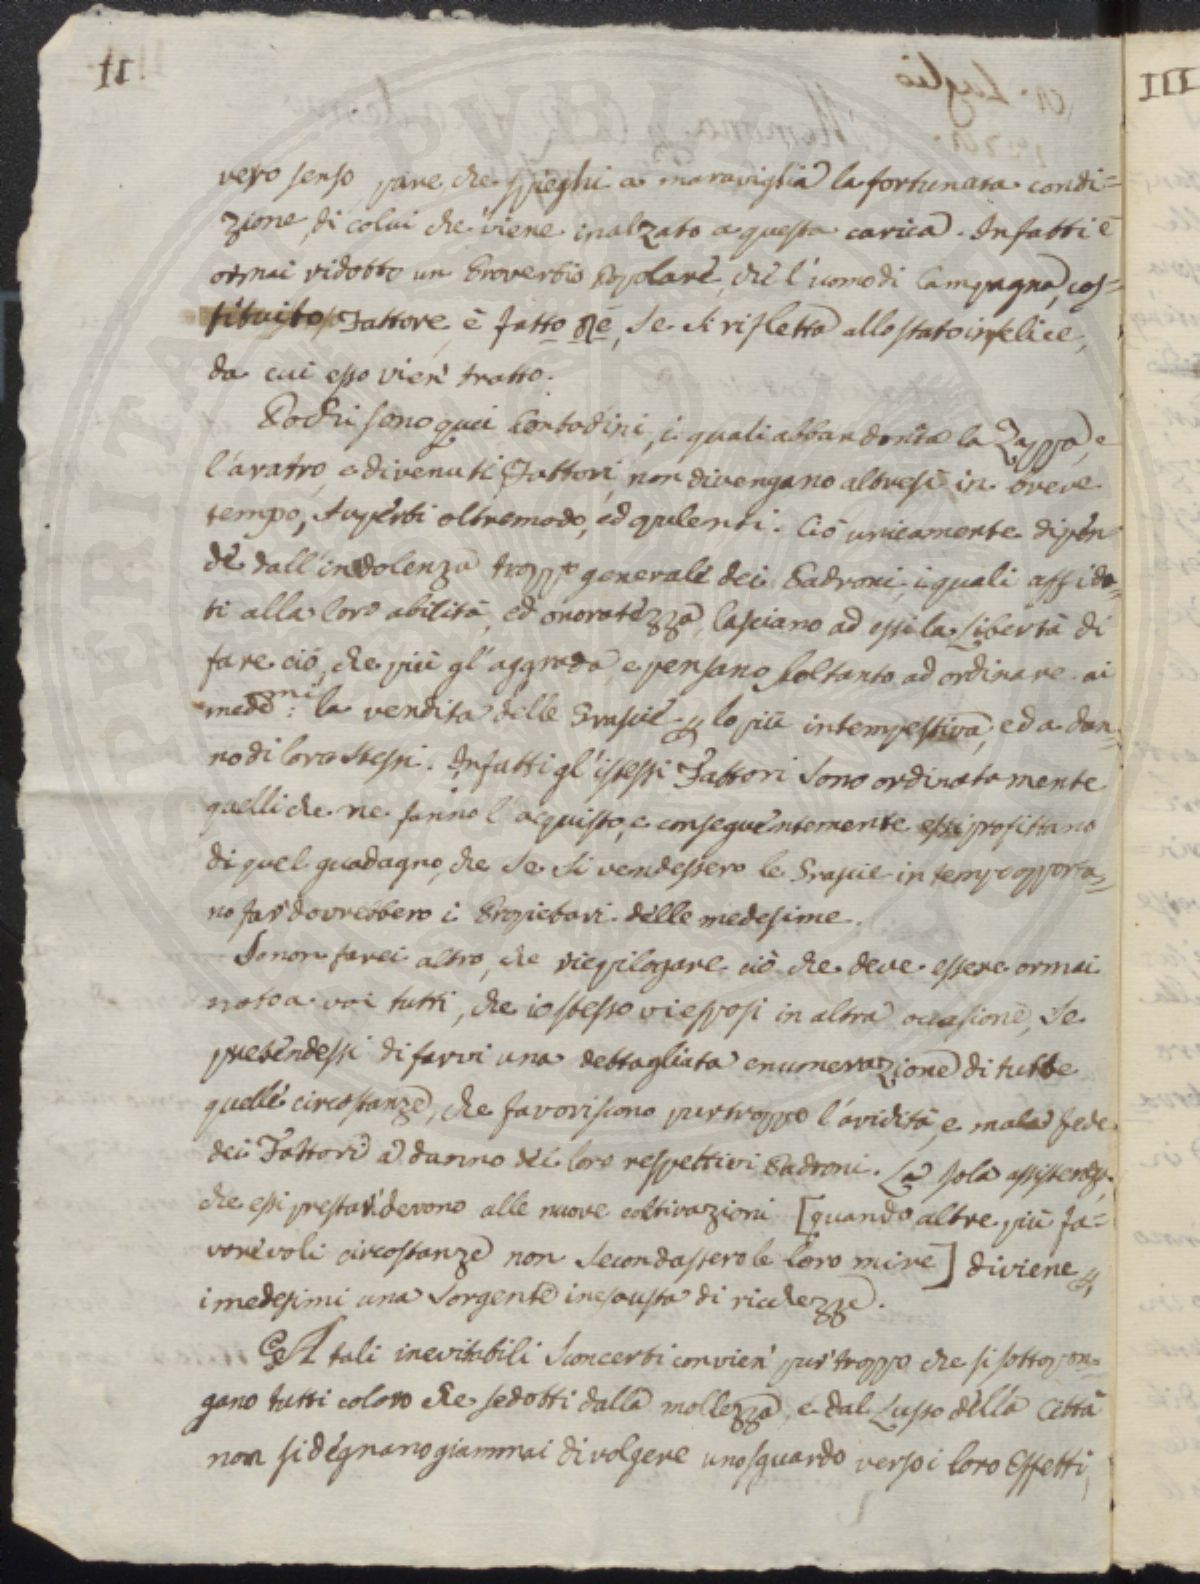 vero senso, pare che spieghi a maraviglia la fortunata condi=
zione di colui che viene inalzato a questa carica. Infatti è
ormai ridotto un Proverbio Popolare, che l'uomo di Campagna, cos=
tituito Fattore, è fatto Rè, se si rifletta allo stato infelice,
da cui esso vien' tratto.
Pochi sono quei Contadini, i quali abbandonata la Zappa, e
l'aratro, e divenuti Fattori, non divengano altresì in breve
tempo, superbi oltremodo, ed opulenti. Ciò unicamente dipen=
de dall'indolenza troppo generale dei Padroni, i quali affida=
ti alla loro abilità, ed onoratezza, lasciano ad essi la Libertà di
fare ciò, che più gl'aggrada, e pensano soltanto ad ordinare ai
medemi: la vendita delle Grascie p lo più intempestiva, ed a dan=
no di loro stessi. Infatti gl'istessi Fattori sono ordinatamente
quelli che ne fanno l'acquisto, e conseguentemente essi profittano
di quel guadagno, che se si vendessero le Grascie in tempo opportu=
no far dovrebbero i Propietari delle medesime.
Io non farei altro, che riepilogare ciò che deve essere ormai
noto a voi tutti, che io stesso vi esposi in altra occasione, se
pretendessi di farvi una dettagliata enumerazione di tutte
quelle circostanze, che favoriscono pur troppo l'avidità, e mala fede
dei Fattori a danno dei loro respettivi Padroni. La sola assistenza,
che essi prestar' devono alle nuove coltivazioni [quando altre più fa=
vorevoli circostanze non secondassero le loro mire] diviene p
i medesimi una sorgente inesausta di ricchezze.
A tali inevitabili sconcerti convien' pur troppo che si sottopon=
gano tutti coloro che sedotti dalla mollezza, e dal Lusso della Città
non si degnano giammai di volgere uno sguardo verso i loro Effetti,